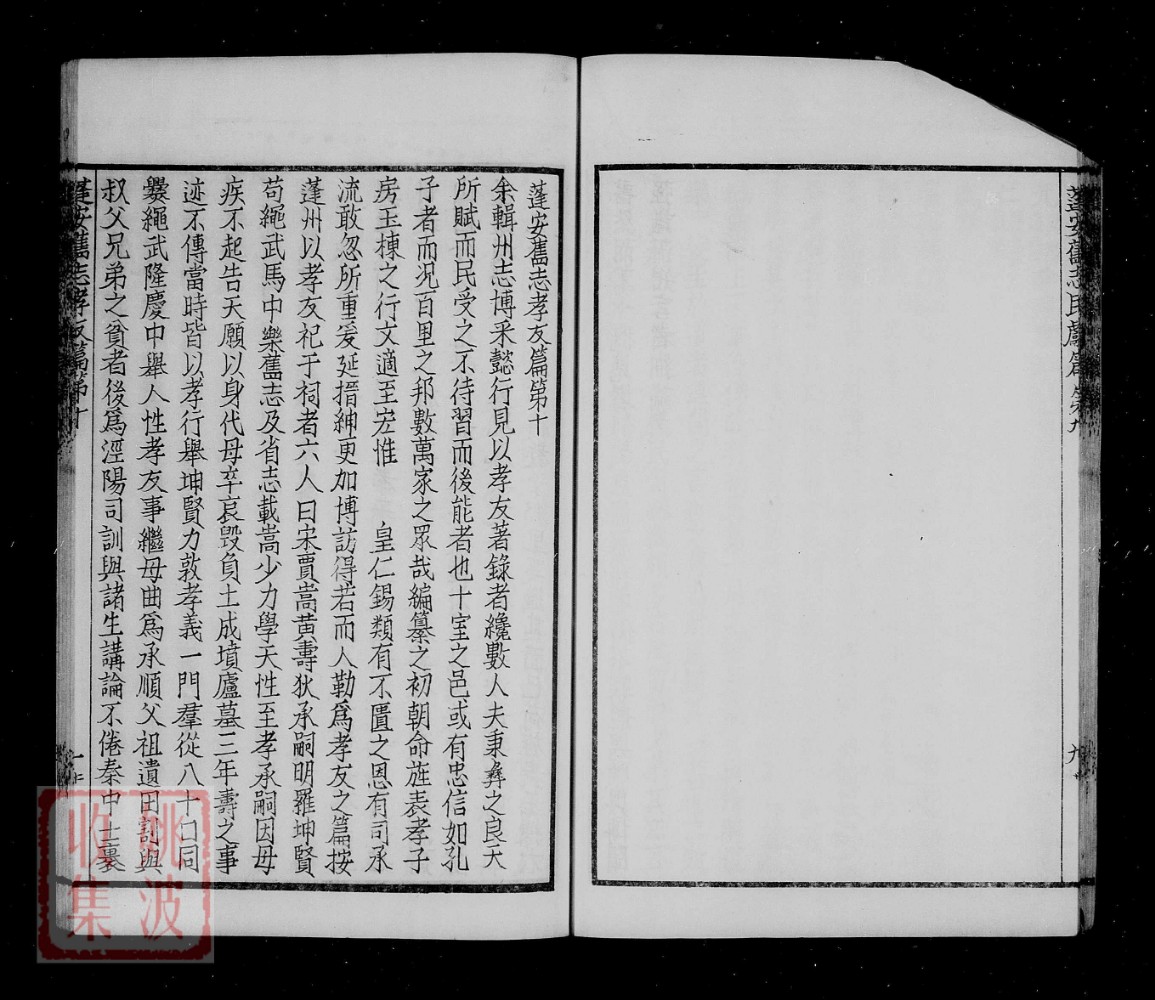 蓬安舊志民獻篇第九
九
蓬安舊志孝友篇第十
余輯州志博采懿行見以孝友著錄者纔數人夫秉彝之良天
所賦而民受之不待習而後能者也十室之邑或有忠信如孔
子者而况百里之邦數萬家之眾哉編纂之初朝命旌表孝子
房玉棟之行文適至宏惟 皇仁錫類有不匱之恩有司承
流敢忽所重爰延搢紳更加博訪得若而人勒爲孝友之篇按
蓬州以孝友祀于祠者六人曰宋賈嵩黃壽狄承嗣明羅坤賢
苟繩武馬中樂舊志及省志載嵩少力學天性至孝承嗣因母
疾不起告天願以身代母卒哀毀負土成墳廬墓三年壽之事
迹不傳當時皆以孝行舉坤賢力敦孝義一門羣從八十口同
爨繩武隆慶中舉人性孝友事繼母曲爲承順父祖遺田割與
叔父兄弟之貧者後爲涇陽司訓與諸生講論不倦秦中士裹
蓬安舊志孝友篇第十
一
姚波
收集